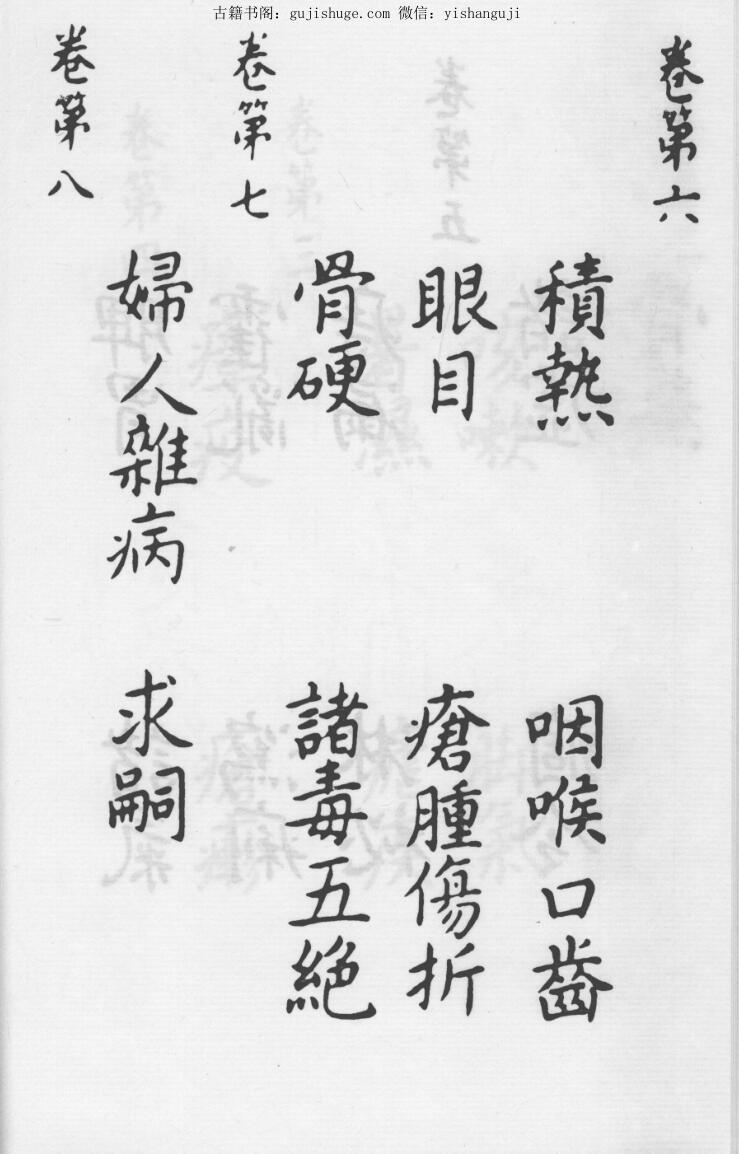 古籍书阁：gujishuge.com 微信：yishanguji
卷第六
積熱 咽喉口齒
眼目 瘡腫傷折
骨硬 諸毒五絕
卷第七
婦人雜病 求嗣
卷第八